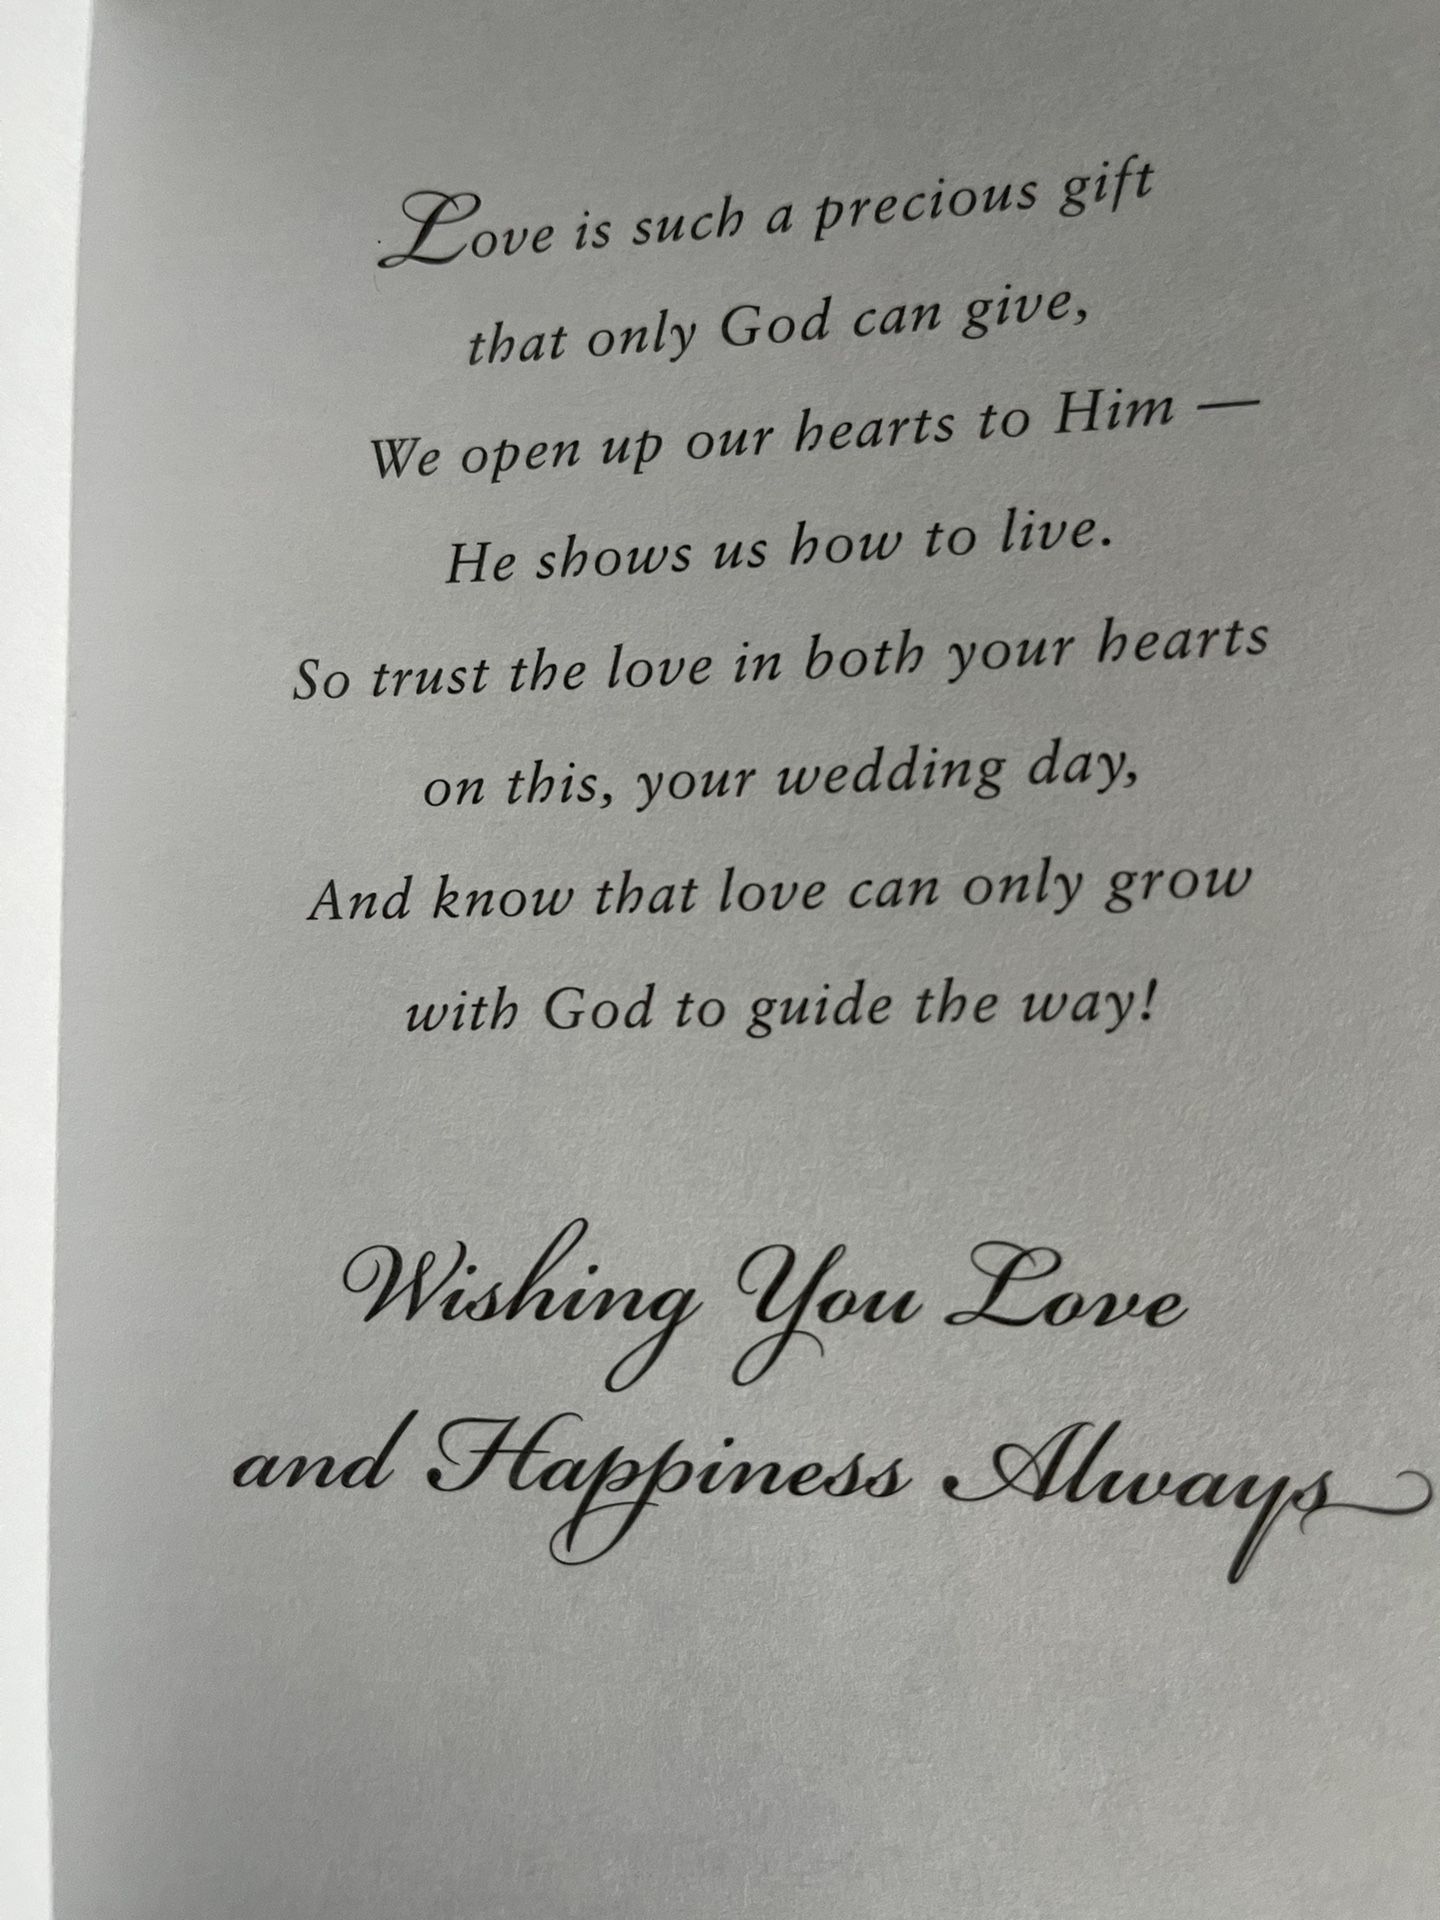 Love is such a precious gift
that only God can give,
We open up our hearts to Him —
He shows us how to live.
So trust the love in both your hearts
on this, your wedding day,
And know that love can only grow
with God to guide the way!
Wishing You Love
and Happiness Always